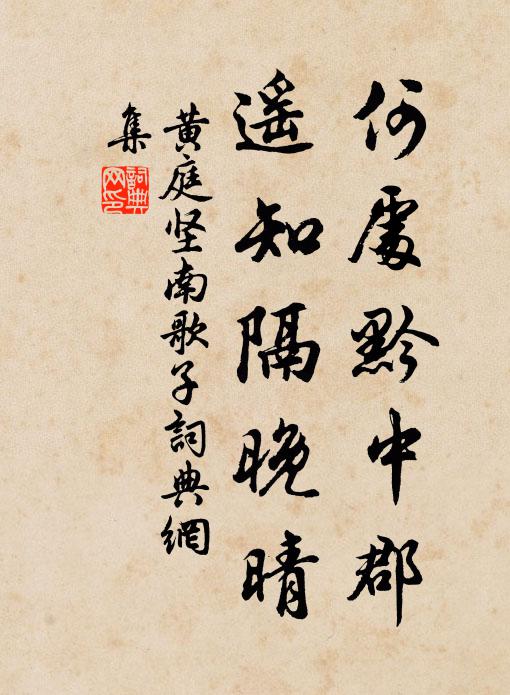 何處黔中郡
遥知隔晚晴
黄庭坚南歌子詞典網
集
詞典
网印